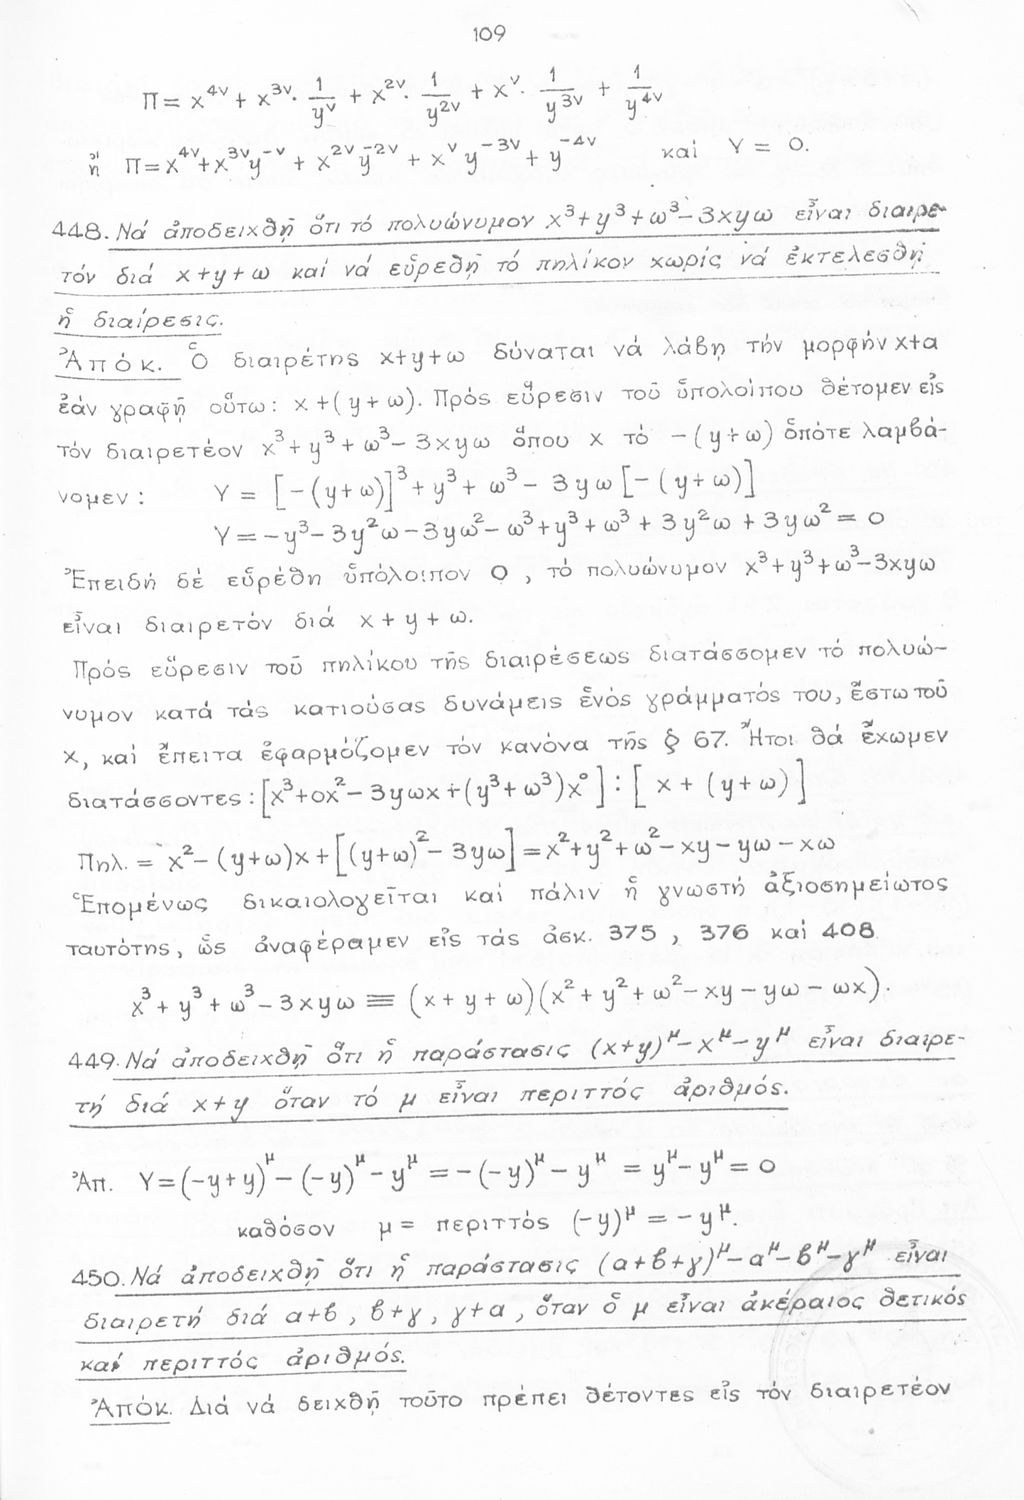 109
Π = x⁴ᵛ + x³ᵛ· 1/yᵛ + x²ᵛ· 1/y²ᵛ + xᵛ· 1/y³ᵛ + 1/y⁴ᵛ
ἤ Π = x⁴ᵛ + x³ᵛy⁻ᵛ + x²ᵛy⁻²ᵛ + xᵛy⁻³ᵛ + y⁻⁴ᵛ καί Υ = 0.
448. Νά ἀποδειχθῇ ὅτι τό πολυώνυμον x³ + y³ + ω³ – 3xyω εἶναι διαιρε-
τόν διά x + y + ω καί νά εὑρεθῇ τό πηλίκον χωρίς νά ἐκτελεσθῇ
ἡ διαίρεσις.
Ἀπόκ. Ὁ διαιρέτης x+y+ω δύναται νά λάβῃ τήν μορφήν x+α
ἐάν γραφῇ οὕτω: x + (y + ω). Πρός εὕρεσιν τοῦ ὑπολοίπου θέτομεν εἰς
τόν διαιρετέον x³ + y³ + ω³ – 3xyω ὅπου x τό – (y + ω) ὁπότε λαμβά-
νομεν: Υ = [– (y + ω)]³ + y³ + ω³ – 3yω [– (y + ω)]
Υ = – y³ – 3y²ω – 3yω² – ω³ + y³ + ω³ + 3y²ω + 3yω² = 0
Ἐπειδή δέ εὑρέθη ὑπόλοιπον 0, τό πολυώνυμον x³ + y³ + ω³ – 3xyω
εἶναι διαιρετόν διά x + y + ω.
Πρός εὕρεσιν τοῦ πηλίκου τῆς διαιρέσεως διατάσσομεν τό πολυώ-
νυμον κατά τάς κατιούσας δυνάμεις ἑνός γράμματός του, ἔστω τοῦ
x, καί ἔπειτα ἐφαρμόζομεν τόν κανόνα τῆς § 67. Ἤτοι θά ἔχωμεν
διατάσσοντες: [x³ + 0x² – 3yωx + (y³ + ω³)x⁰] : [x + (y + ω)]
Πηλ. = x² – (y+ω)x + [(y+ω)² – 3yω] = x² + y² + ω² – xy – yω – xω
Ἑπομένως δικαιολογεῖται καί πάλιν ἡ γνωστή ἀξιοσημείωτος
ταυτότης, ὡς ἀναφέραμεν εἰς τάς ἀσκ. 375, 376 καί 408
x³ + y³ + ω³ – 3xyω ≡ (x + y + ω)(x² + y² + ω² – xy – yω – ωx).
449. Νά ἀποδειχθῇ ὅτι ἡ παράστασις (x+y)^μ – x^μ – y^μ εἶναι διαιρε-
τή διά x + y ὅταν τό μ εἶναι περιττός ἀριθμός.
Ἀπ. Υ = (–y + y)^μ – (–y)^μ – y^μ = – (–y)^μ – y^μ = y^μ – y^μ = 0
καθόσον μ = περιττός (–y)^μ = – y^μ.
450. Νά ἀποδειχθῇ ὅτι ἡ παράστασις (α+β+γ)^μ – α^μ – β^μ – γ^μ εἶναι
διαιρετή διά α+β, β+γ, γ+α, ὅταν ὁ μ εἶναι ἀκέραιος θετικός
καί περιττός ἀριθμός.
Ἀπόκ. Διά νά δειχθῇ τοῦτο πρέπει θέτοντες εἰς τόν διαιρετέον